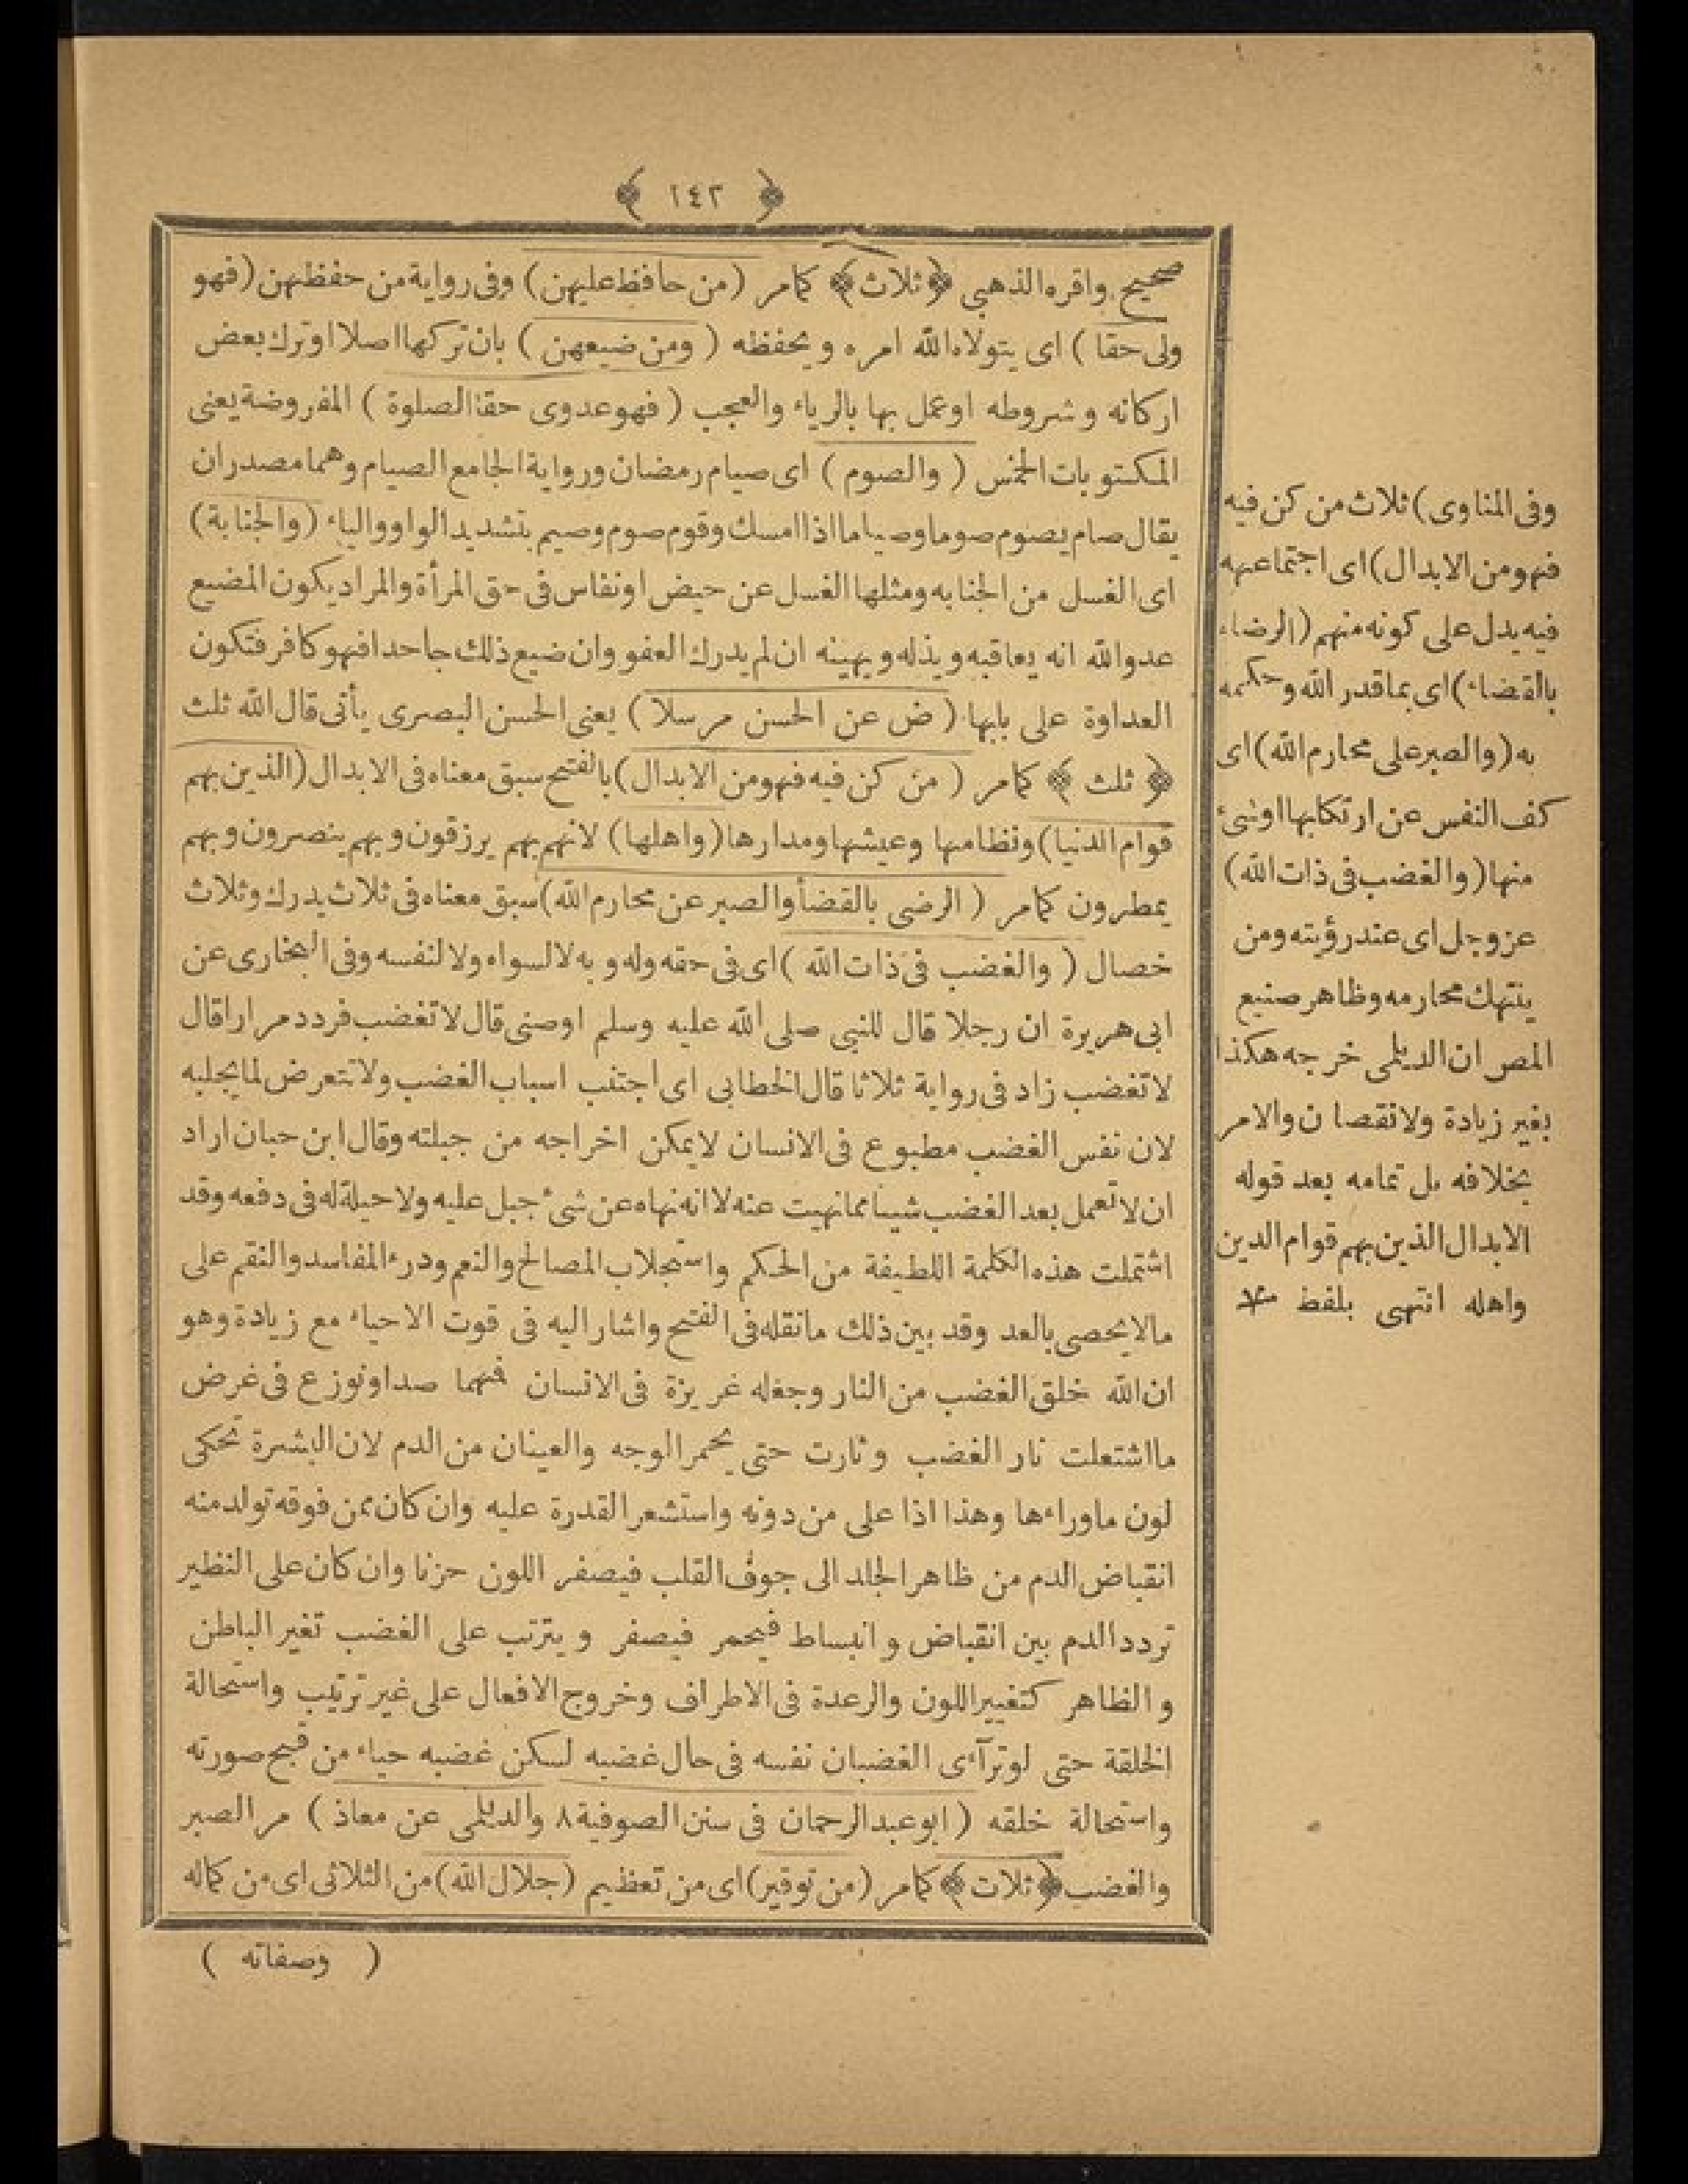 ﴿ ١٤٢ ﴾
صحيح واقره الذهبى ﴿ ثلاث ﴾ كمامر (من حافظ عليهن) وفى رواية من حفظهن (فهو
ولى حقا) اى يتولاه الله امره ويحفظه (ومن ضيعهن) بان تركها اصلا او ترك بعض
اركانه وشروطه اوعمل بها بالرياء والعجب (فهو عدوى حقا الصلوة) المفروضة يعنى
المكتوبات الخمس (والصوم) اى صيام رمضان ورواية الجامع الصيام وهما مصدران
يقال صام يصوم صوما وصياما اذا امسك وقوم صوم وصيم بتشديد الواو والياء (والجنابة)
اى الغسل من الجنابه ومثلها الغسل عن حيض اونفاس فى حق المرأة والمراد يكون المضيع
عدوالله انه يعاقبه ويذله ويهينه ان لم يدرك العفو وان ضيع ذلك جاحدا فهو كافر فتكون
العداوة على بابها (ض عن الحسن مرسلا) يعنى الحسن البصرى يأتى قال الله ثلث
﴿ ثلث ﴾ كمامر (من كن فيه فهو من الابدال) بالفتح سبق معناه فى الابدال (الذين بهم
قوام الدنيا) ونظامها وعيشها ومدارها (واهلها) لانهم بهم يرزقون وبهم ينصرون وبهم
يمطرون كمامر (الرضى بالقضأ والصبر عن محارم الله) سبق معناه فى ثلاث يدرك وثلاث
خصال (والغضب فى ذات الله) اى فى حقه وله وبه لا لسواه ولا لنفسه وفى البخارى عن
ابى هريرة ان رجلا قال للنبى صلى الله عليه وسلم اوصنى قال لاتغضب فردد مرارا قال
لاتغضب زاد فى رواية ثلاثا قال الخطابى اى اجتنب اسباب الغضب ولا تتعرض لما يجلبه
لان نفس الغضب مطبوع فى الانسان لايمكن اخراجه من جبلته وقال ابن حبان اراد
ان لاتعمل بعد الغضب شيئا ممانهيت عنه لا انه نهاه عن شئ جبل عليه ولا حيلة له فى دفعه وقد
اشتملت هذه الكلمة اللطيفة من الحكم واستجلاب المصالح والنعم ودرء المفاسد والنقم على
مالايحصى بالعد وقد بين ذلك مانقله فى الفتح واشار اليه فى قوت الاحياء مع زيادة وهو
ان الله خلق الغضب من النار وجعله غريزة فى الانسان فمهما صد اونوزع فى غرض
ما اشتعلت نار الغضب وثارت حتى يحمر الوجه والعينان من الدم لان البشرة تحكى
لون ماوراءها وهذا اذا على من دونه واستشعر القدرة عليه وان كان ممن فوقه تولد منه
انقباض الدم من ظاهر الجلد الى جوف القلب فيصفر اللون حزنا وان كان على النظير
تردد الدم بين انقباض وانبساط فيحمر فيصفر ويترتب على الغضب تغير الباطن
والظاهر كتغيير اللون والرعدة فى الاطراف وخروج الافعال على غير ترتيب واستحالة
الخلقة حتى لوترآءى الغضبان نفسه فى حال غضبه لسكن غضبه حياء من قبح صورته
واستحالة خلقه (ابو عبد الرحمان فى سنن الصوفية ٨ والديلمى عن معاذ) مر الصبر
والغضب ﴿ ثلاث ﴾ كمامر (من توقير) اى من تعظيم (جلال الله) من الثلاثى اى من كماله
( وصفاته )
وفى المناوى) ثلاث من كن فيه
فهو من الابدال) اى اجتماعهه
فيه يدل على كونه منهم (الرضاء
بالقضاء) اى بما قدر الله وحكمه
به (والصبر على محارم الله) اى
كف النفس عن ارتكابها اوشئ
منها (والغضب فى ذات الله)
عزوجل اى عند رؤيته ومن
ينتهك محارمه وظاهر صنيع
المص ان الديلمى خرجه هكذا
بغير زيادة ولا نقصان والامر
بخلافه بل تمامه بعد قوله
الابدال الذين بهم قوام الدين
واهله انتهى بلفظ